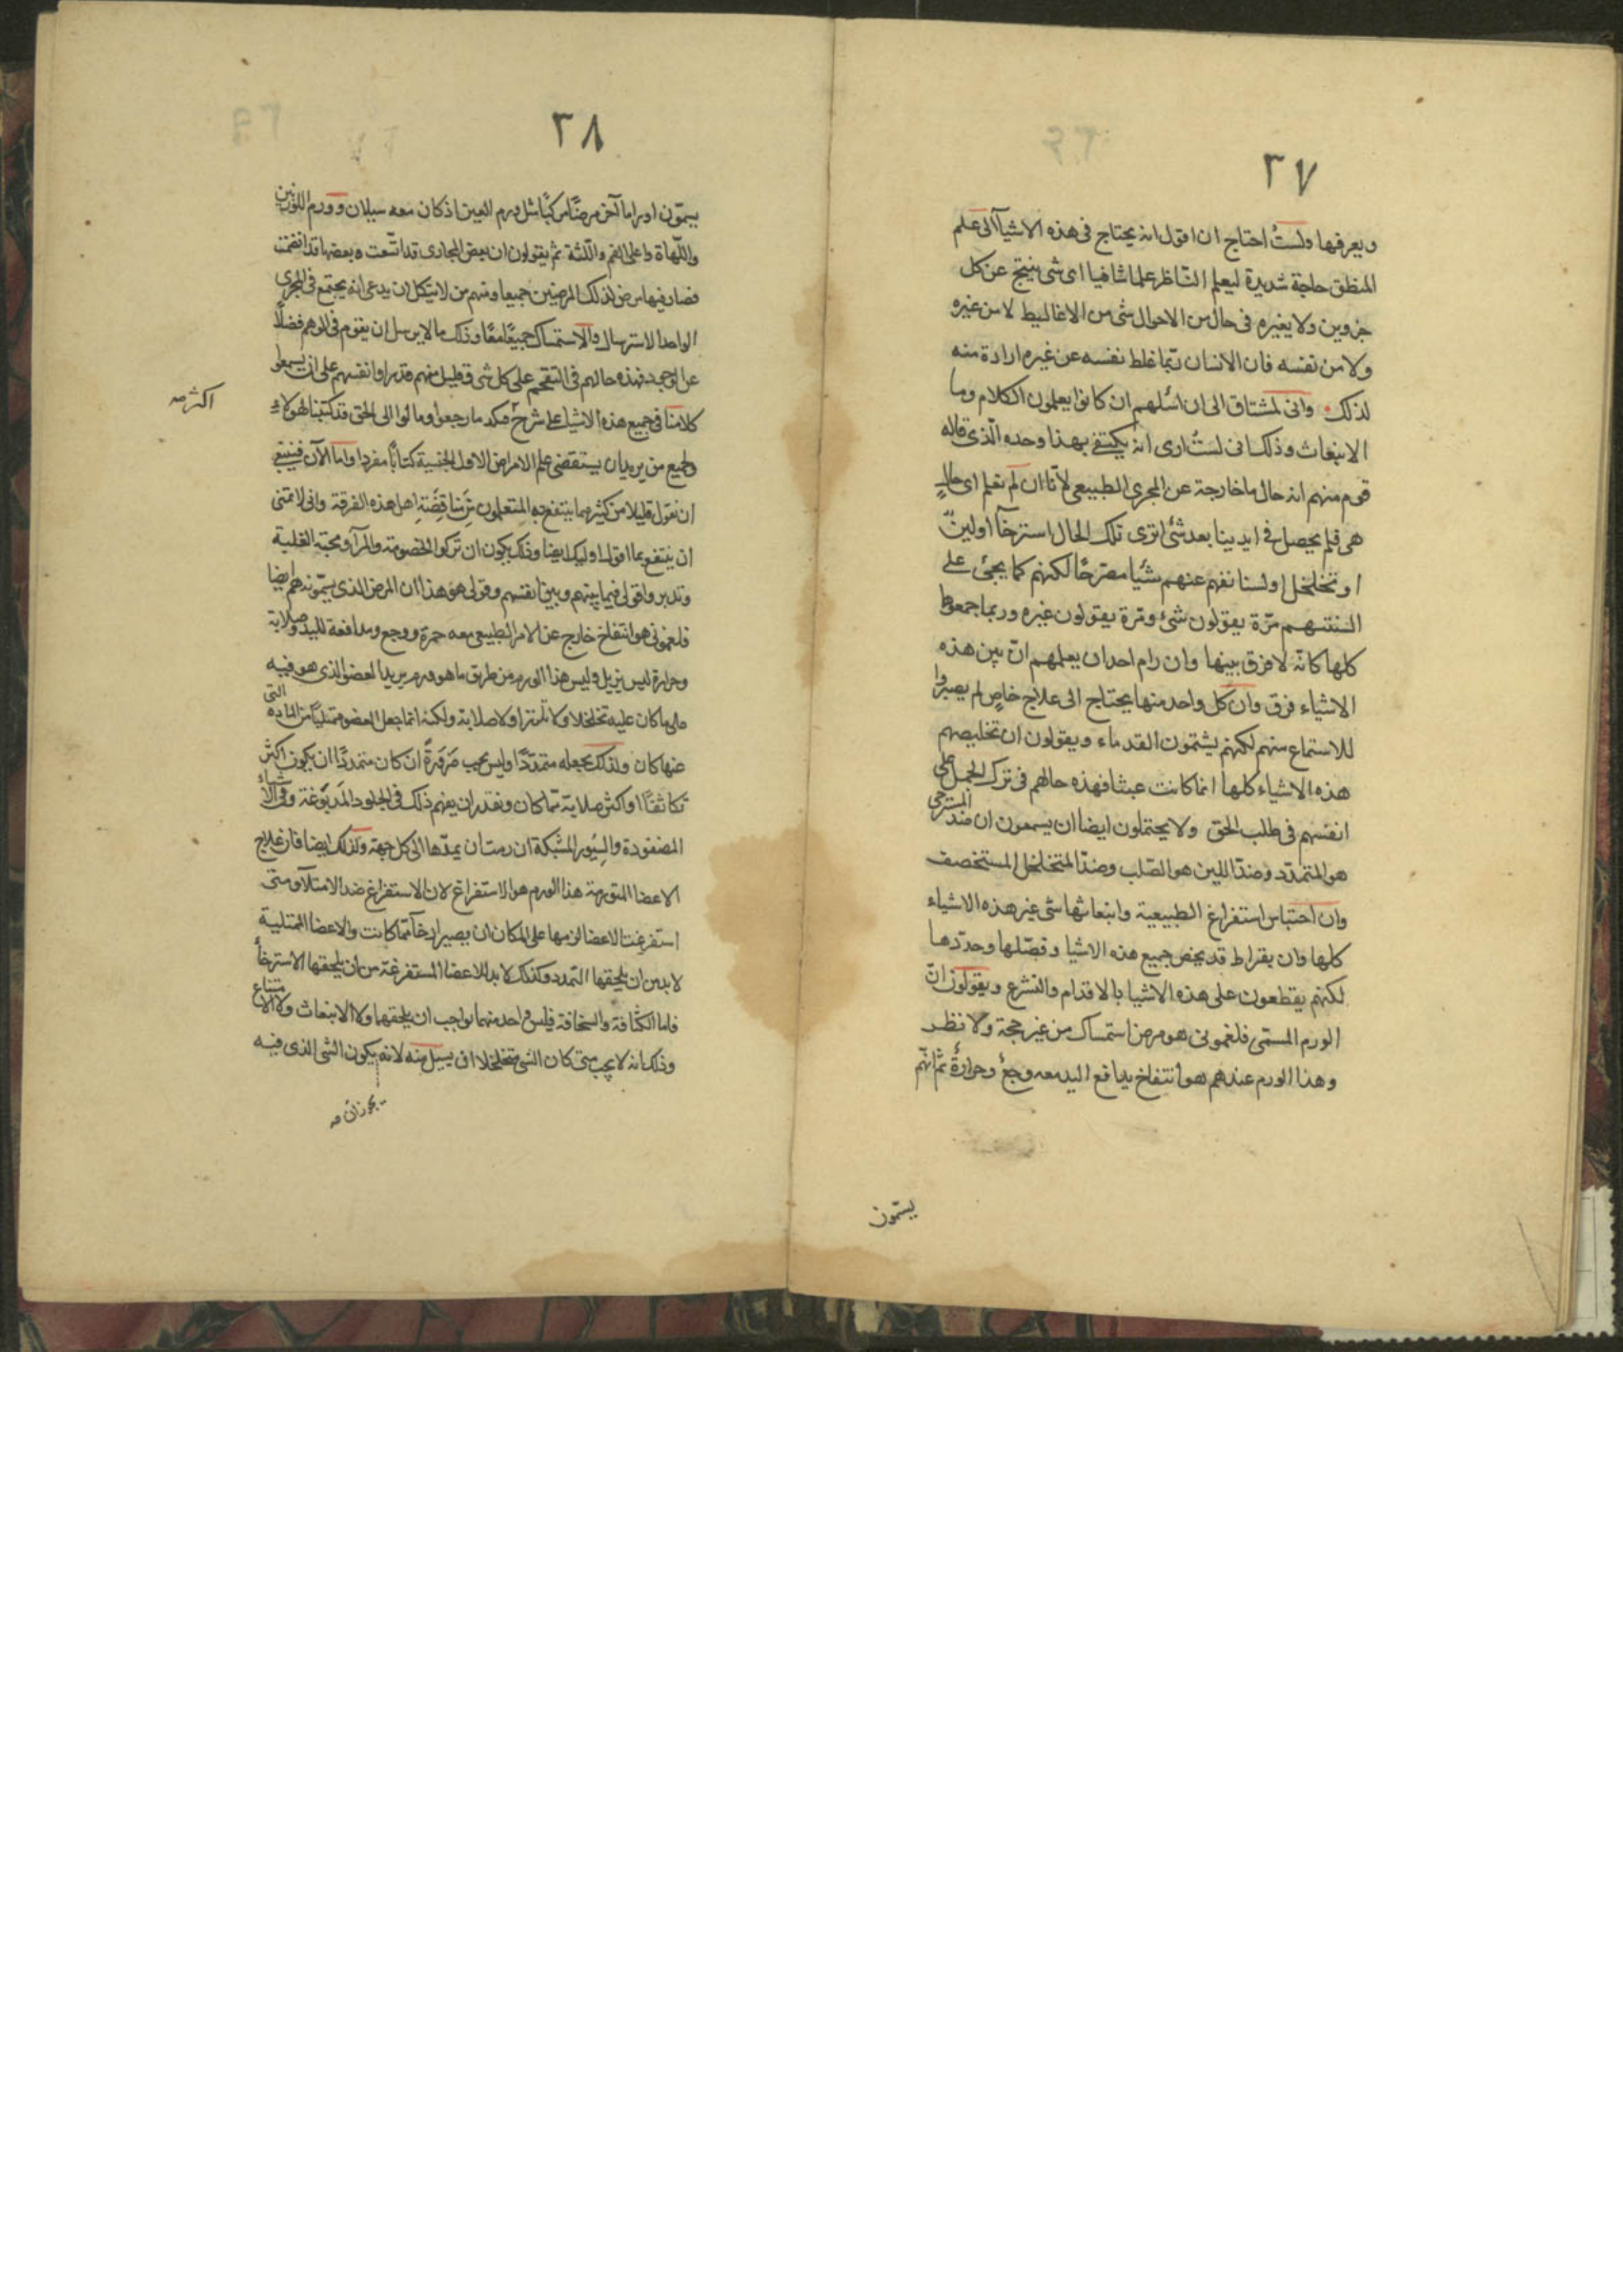 ٣٧
ويعرفها ولستُ احتاج ان اقول انه يحتاج فى هذه الاشيآ الى علم
المنطق حاجة شديدة ليعلم النّاظر علما شافيا اى شى ينتج عن كل
ولا يغيره فى حال من الاحوال شى من الاغاليط لا من غيره
ولا من نفسه فان الانسان ربّما غلط نفسه عن غير ارادة منه
لذلك وانى لمشتاق الى ان اسٔلهم ان كانوا يعلمون الكلام وما
الانبغاث وذلك انى لستُ ارى انه يكتفى بهذا وحده الّذى قاله
قوم منهم انه حال ما خارجة عن المجرى الطبيعى لأنّا ان لم نعلم اى حالٍ
هى فلم يحصل فى ايدينا بعد شئ اترى تلك الحال استرخآ او لينٌ
او تخلخل ولسنا نفهم عنهم شئيا مصرّحًا لكنهم كما يجئ على
السنتهم مرّة يقولون شئ ومرة يقولون غيره وربما جمعوا
كلها كانّه لا فرق بينها وان رام احد ان يعلمهم انّ بين هذه
الاشياء فرق وان كل واحد منها يحتاج الى علاج خاصٍ لم يصبروا
للاستماع منهم لكنهم يشتمون القدماء ويقولون ان تخليصهم
هذه الاشياء كلها انما كانت عبثا فهذه حالهم فى ترك الحمل على
انفسهم فى طلب الحق ولا يحتملون ايضا ان يسمعون ان ضد المسترخى
هو المتمدّد وضدّ اللين هو الصّلب وضدّ المتخلخل المستخصف
وان احتباس استفراغ الطبيعية وانبعاثها شى غير هذه الاشياء
كلها وان بقراط قد يخص جميع هذه الاشيا وفصّلها وحدّدها
لكنهم يقطعون على هذه الاشيا بالاقدام والتشرع ويقولون انّ
الورم المسمّى فلغمونى هو مرض استمساك من غير حجة ولا نظر
وهذا الورم عندهم هو انتفاخ يدافع اليد معه وجعٌ وحرارةٌ ثم انّهم
يسمّون
٣٨
يسمّون اوراما آخر مرضًا مركبًا مثل ورم العين اذ كان معه سيلان وورم اللوزتين
واللّهاة واعلى الفم واللّثة ثم يقولون ان بعض المجارى قد اتّسعت وبعضها قد انضمت
فصار فيها مرض لذلك المرضين جميعا ومنهم من لا يتّكل ان يدعى انه يجتمع فى المجرى
الواحد الاسترسال والاستمساك جميعًا معًا وذلك ما لا يرسل ان يقوم فى الوهم فضلًا
عن الوجود فهذه حالهم فى التقحم على كل شى وقليل منهم قدروا انفسهم على ان يسمعوا
كلامنا فى جميع هذه الاشيا على شرح فبكد ما رجعوا ومالوا الى الحق وقد كتبنا لهولاء
ولجميع من يريد ان يستقصى علم الامراض الاول الجنسية كتابًا مفردا واما الآن فينبغى
ان نقول قليلا من كثير مما ينتفع به المتعلمون من مناقضة اهل هذه الفرقة وانى لاتمنى
ان ينتفع بما اقول اوليك ايضا وذلك يكون ان تركوا الخصومة والمرآ ومحبّة الغلبة
وتدبروا قولى فيما بينهم وبين انفسهم وقولى هو هذا ان المرض الذى يسمّونه هم ايضا
فلغمونى هو انتفاخ خارج عن الامر الطبيعى معه حمرة ووجع ومدافعة لليد وصلابة
وحرارة ليس يزيل وليس هذا الورم من طريق ما هو ورم يزيد العضو الذى هو فيه
على ما كان عليه تخلخلا ولا تلززا ولا صلابة ولكنه انما جعل العضو ممتليًا من المادة التى
عنها كان ولذلك يجعله متمدّدًا وليس يجب ضَرورةً ان كان متمددًا ان يكون اكثر
تكاثفًا او اكثر صلابة ممّا كان ونقدر ان يفهم ذلك فى الجلود المَدبُوغة وفى الاشياء
المضفودة والسيُور المشبكة ان رمت ان يمدّها الى كل جهة وكذلك ايضا فان علاج
الاعضا المتورمة هذا الورم هو الاستفراغ لان الاستفراغ ضد الامتلآ ومتى
استفرغت الاعضا لزمها على المكان ان يصير ارخآ ممّا كانت والاعضا الممتلية
لا بد من ان يلحقها التمدد وكذلك لا بد للاعضا المستفرغة من ان يلحقها الاسترخآ
فاما الكثافة والسخافة فليس واحد منهما بواجب ان يلحقهما ولا الانبغاث ولا الامتناع
وذلك انه لا يجب متى كان الشى متخلخلا ان يسيل منه لانه يكون الشى الذى فيه
اكثر صه
يجوز ان صه